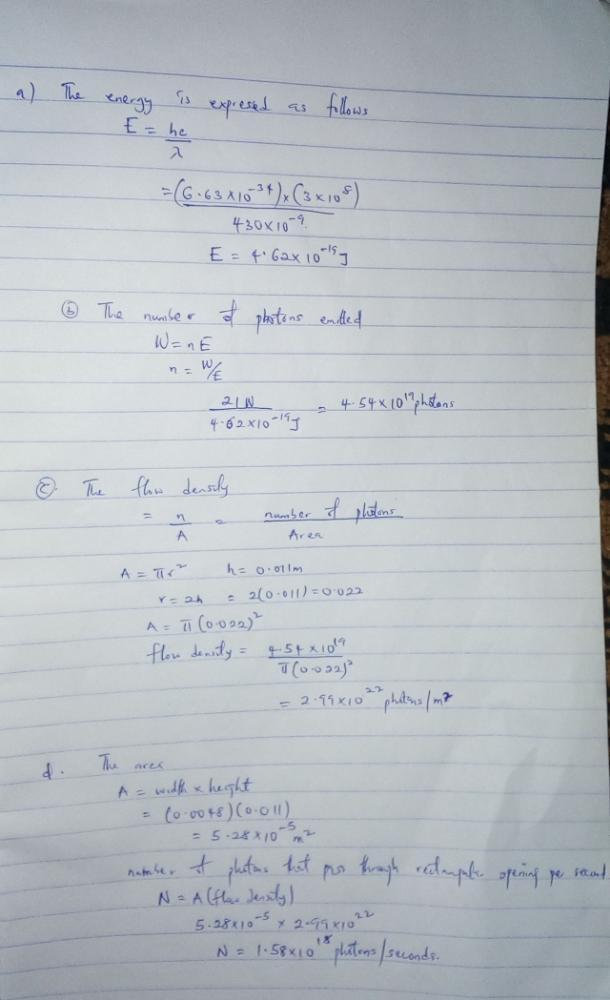 a) The energy is expresed as follows
E = hc
λ
= (6.63 x 10^-34) x (3 x 10^8)
430 x 10^-9
E = 4.62 x 10^-19 J
(b) The number of photons emitted
W = nE
n = W/E
21 W
4.62 x 10^-19 J = 4.54 x 10^19 photons
(c). The flow density
= n = number of photons
A Area
A = πr^2 h = 0.011m
r = 2h = 2(0.011) = 0.022
A = π(0.022)^2
flow density = 4.54 x 10^19
π(0.022)^2
= 2.99 x 10^22 photons/m^2
d. The area
A = width x height
= (0.0048)(0.011)
= 5.28 x 10^-5 m^2
number of photons that pass through rectangular opening per second
N = A(flow density)
5.28 x 10^-5 x 2.99 x 10^22
N = 1.58 x 10^18 photons/seconds.